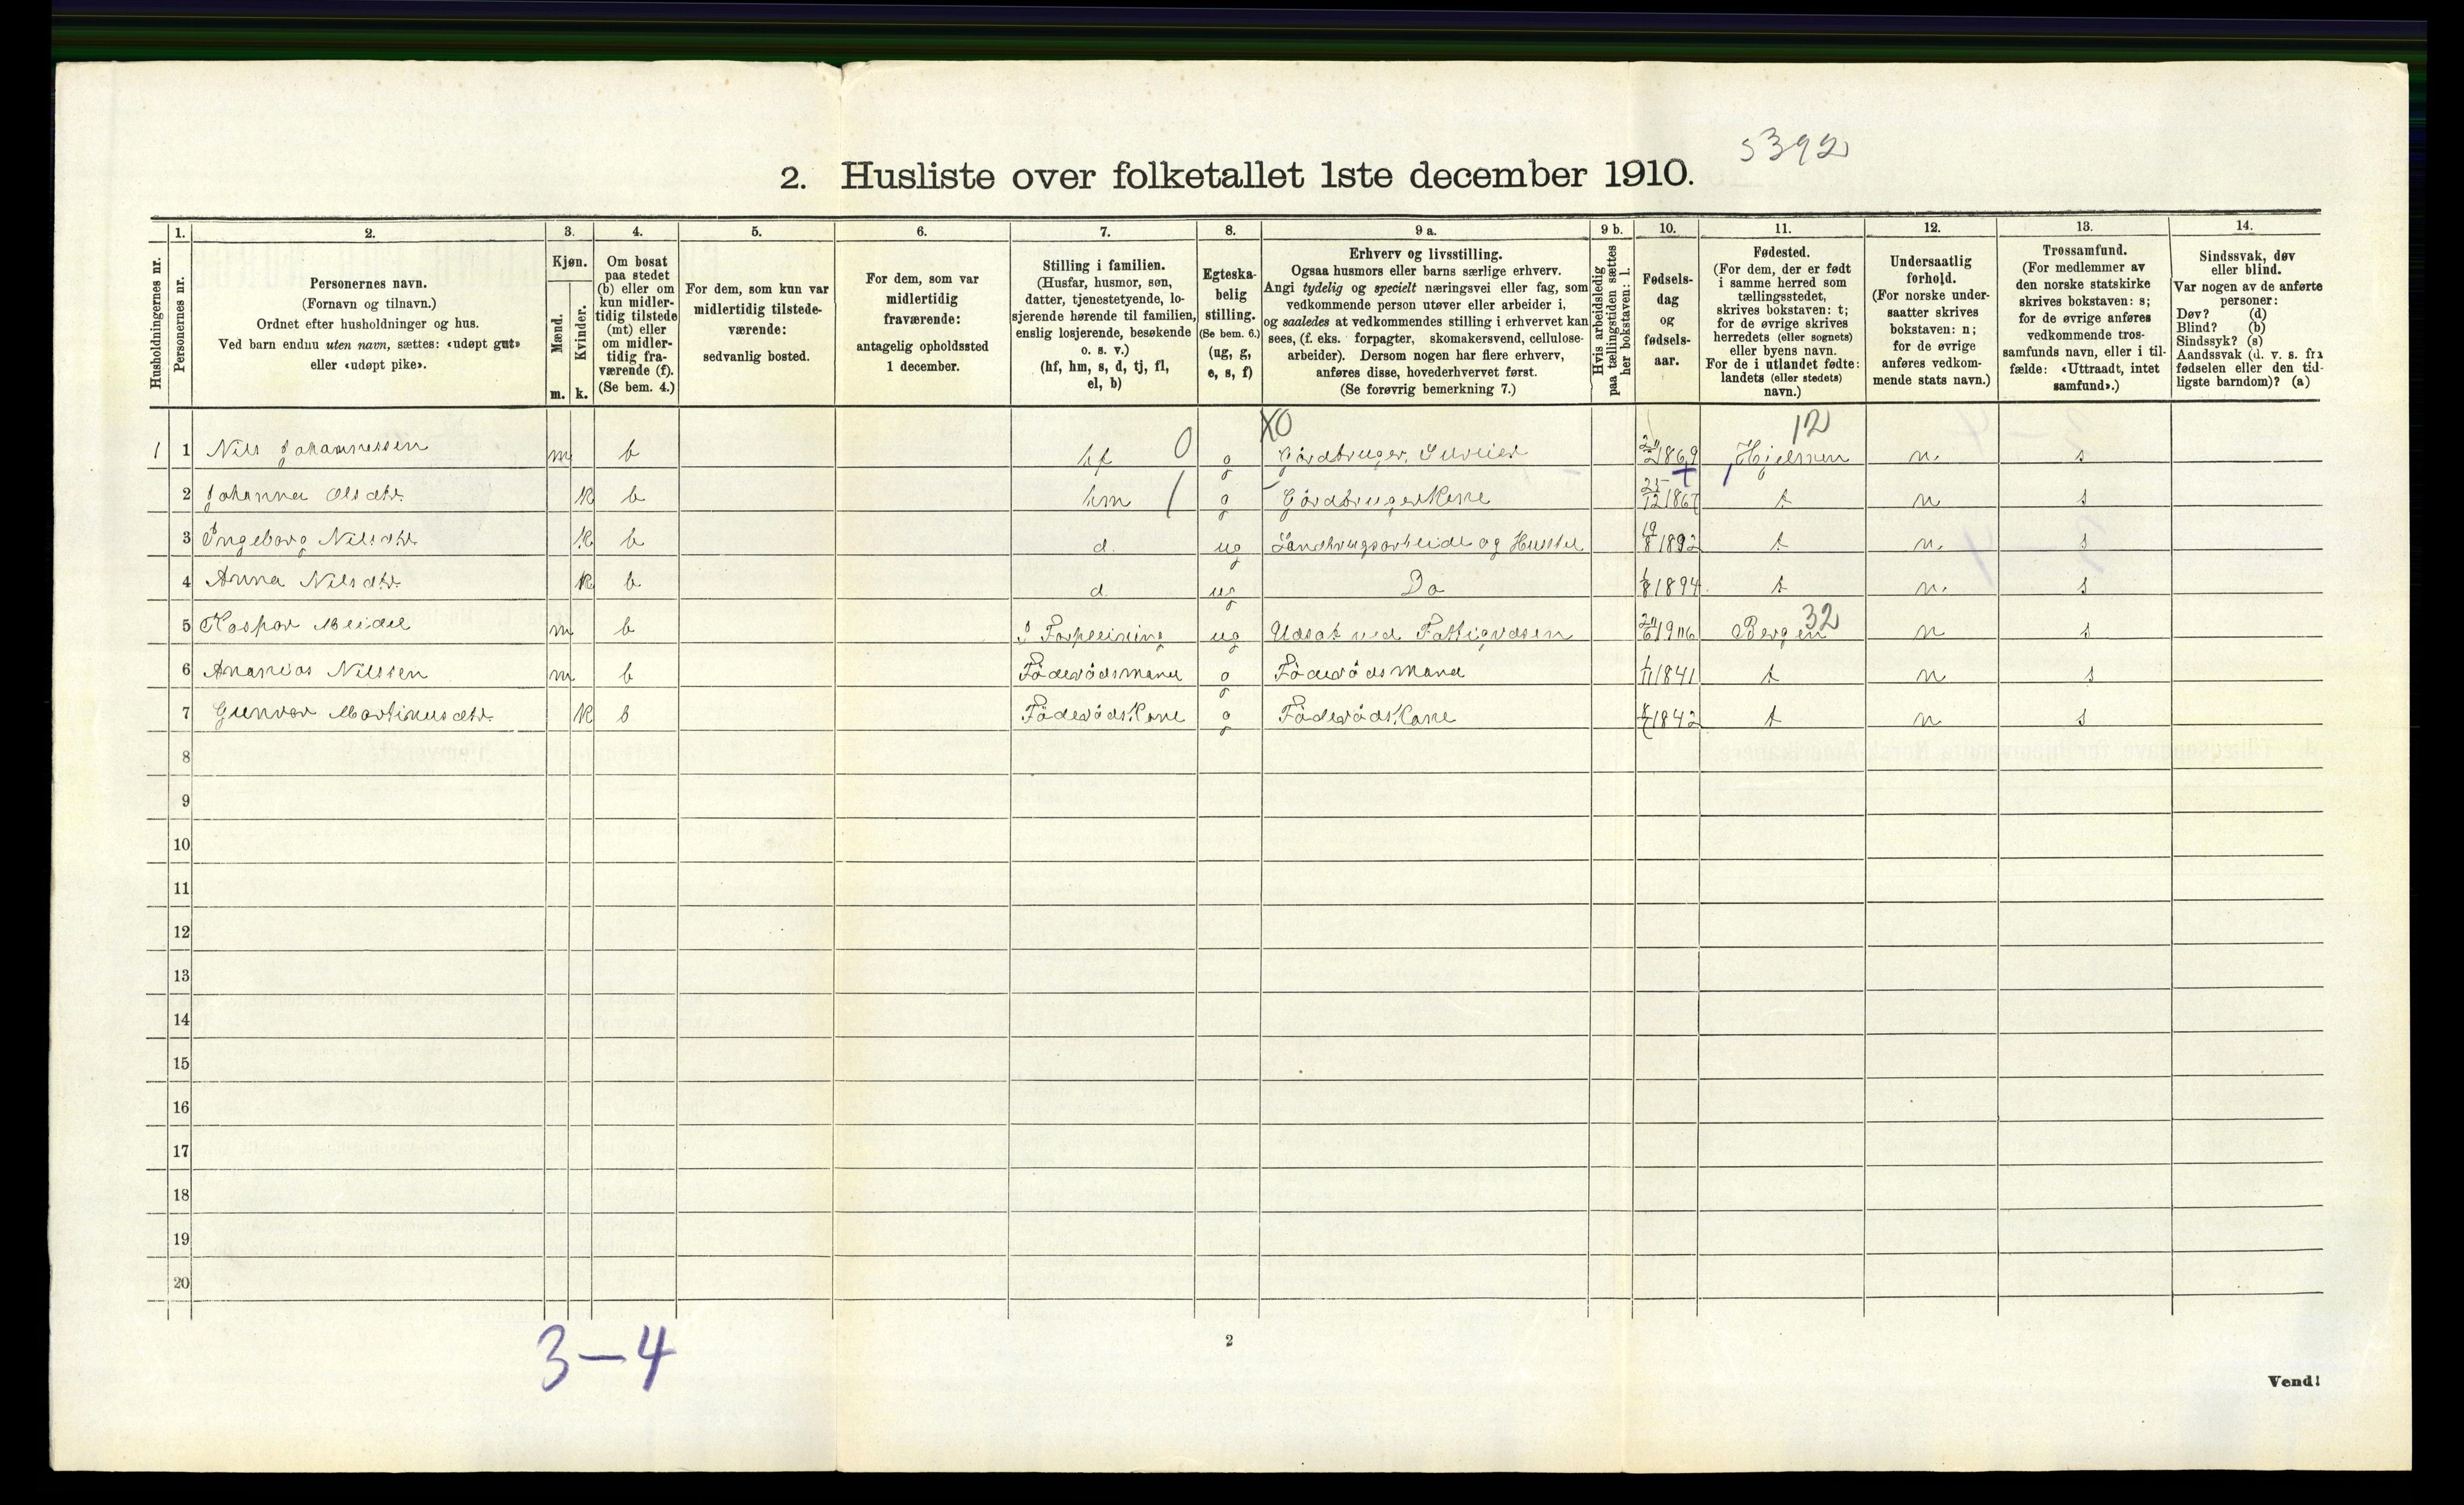 5392
2. Husliste over folketallet 1ste december 1910.
Husholdningernes nr.
1.
Personernes nr.
2.
Personernes navn.
(Fornavn og tilnavn.)
Ordnet efter husholdninger og hus.
Ved barn endnu uten navn, sættes: «udøpt gut»
eller «udøpt pike».
3.
Kjøn.
Mænd.
Kvinder.
m. k.
4.
Om bosat
paa stedet
(b) eller om
kun midler-
tidig tilstede
(mt) eller
om midler-
tidig fra-
værende (f).
(Se bem. 4.)
5.
For dem, som kun var
midlertidig tilstede-
værende:
sedvanlig bosted.
6.
For dem, som var
midlertidig
fraværende:
antagelig opholdssted
1 december.
7.
Stilling i familien.
(Husfar, husmor, søn,
datter, tjenestetyende, lo-
sjerende hørende til familien,
enslig losjerende, besøkende
o. s. v.)
(hf, hm, s, d, tj, fl,
el, b)
8.
Egteska-
belig
stilling.
(Se bem. 6.)
(ug, g,
e, s, f)
9 a.
Erhverv og livsstilling.
Ogsaa husmors eller barns særlige erhverv.
Angi tydelig og specielt næringsvei eller fag, som
vedkommende person utøver eller arbeider i,
og saaledes at vedkommendes stilling i erhvervet kan
sees, (f. eks. forpagter, skomakersvend, cellulose-
arbeider). Dersom nogen har flere erhverv,
anføres disse, hovederhvervet først.
(Se forøvrig bemerkning 7.)
9 b.
Hvis arbeidsledig
paa tællingstiden sættes
her bokstaven: l.
10.
Fødsels-
dag
og
fødsels-
aar.
11.
Fødested.
(For dem, der er født
i samme herred som
tællingsstedet,
skrives bokstaven: t;
for de øvrige skrives
herredets (eller sognets)
eller byens navn.
For de i utlandet fødte:
landets (eller stedets)
navn.)
12.
Undersaatlig
forhold.
(For norske under-
saatter skrives
bokstaven: n;
for de øvrige
anføres vedkom-
mende stats navn.)
13.
Trossamfund.
(For medlemmer av
den norske statskirke
skrives bokstaven: s;
for de øvrige anføres
vedkommende tros-
samfunds navn, eller i til-
fælde: «Uttraadt, intet
samfund».)
14.
Sindssvak, døv
eller blind.
Var nogen av de anførte
personer:
Døv? (d)
Blind? (b)
Sindssyk? (s)
Aandssvak (d. v. s. fra
fødselen eller den tid-
ligste barndom)? (a)
X0 12
1 1 Nils Johannessen m b hf 0 g Gårdbruger, Selveier 1869 Hjelmen n. s
2 Johanna Olsdtr. k b hm 1 g Gårdbrugerkone 25/12 1867 t n s
3 Ingeborg Nilsdtr k b d. ug Landbrugsarbeide og Husstel 19/8 1892 t n. s
4 Anna Nilsdtr. k b d. ug Do 1/8 1894 t n. s
5 Kaspar Meidel m b I Forpleining ug Udsat ved Fattigvæsen 1906 Bergen 32 n s
6 Ananias Nilssen m b Føderådsmand g Føderådsmand 1/11 1841 t n s
7 Gunvor Martinusdtr. k b Føderådskone g Føderådskone 1842 t n s
8
9
10
11
12
13
14
15
16
17
18
19
20
3-4
2
Vend!